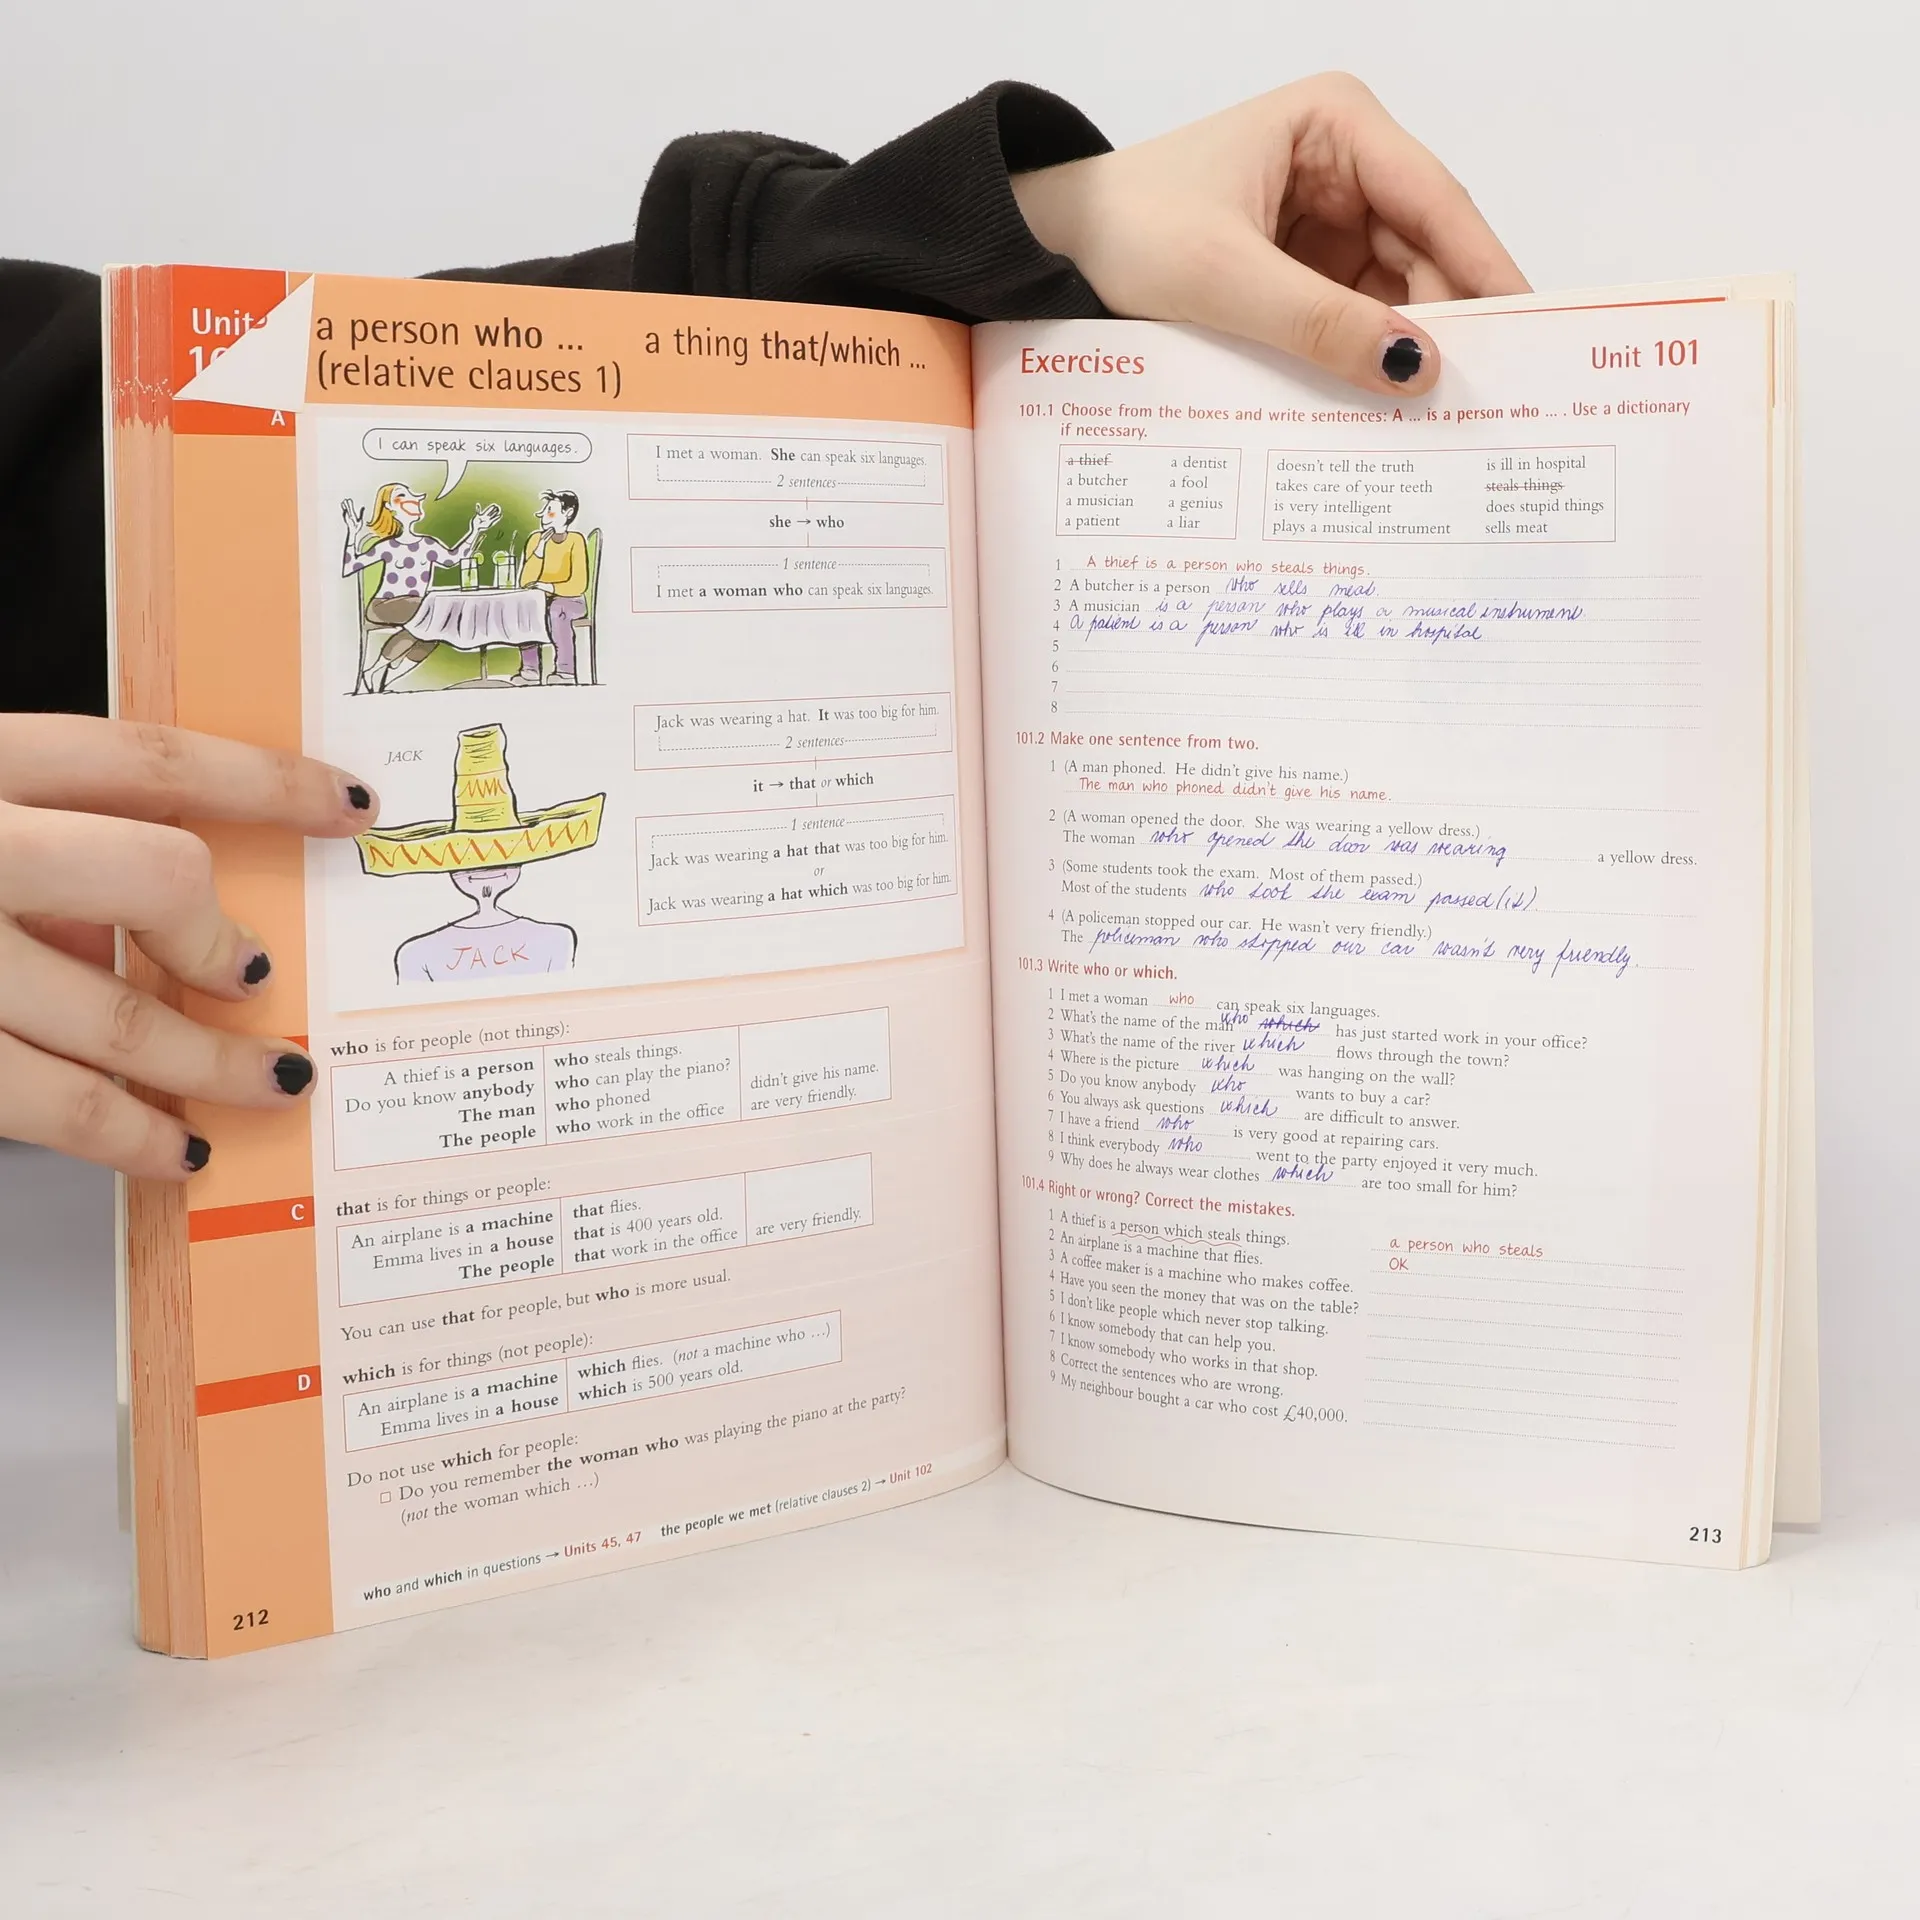 Unit
a person who ...
a thing that/which ...
(relative clauses 1)
A
I can speak six languages.
I met a woman. She can speak six languages.
2 sentences
she → who
1 sentence
I met a woman who can speak six languages.
JACK
JACK
Jack was wearing a hat. It was too big for him.
2 sentences
it → that or which
1 sentence
Jack was wearing a hat that was too big for him.
or
Jack was wearing a hat which was too big for him.
who is for people (not things):
A thief is a person who steals things.
Do you know anybody who can play the piano?
The man who phoned didn't give his name.
The people who work in the office are very friendly.
C
that is for things or people:
An airplane is a machine that flies.
Emma lives in a house that is 400 years old.
The people that work in the office are very friendly.
You can use that for people, but who is more usual.
D
which is for things (not people):
An airplane is a machine which flies. (not a machine who ...)
Emma lives in a house which is 500 years old.
Do not use which for people:
Do you remember the woman who was playing the piano at the party?
(not the woman which ...)
who and which in questions → Units 45, 47 the people we met (relative clauses 2) → Unit 102
212
Exercises
Unit 101
101.1 Choose from the boxes and write sentences: A ... is a person who ... . Use a dictionary
if necessary.
a thief a dentist
a butcher a fool
a musician a genius
a patient a liar
doesn't tell the truth is ill in hospital
takes care of your teeth steals things
is very intelligent does stupid things
plays a musical instrument sells meat
1 A thief is a person who steals things.
2 A butcher is a person who sells meat.
3 A musician is a person who plays a musical instrument.
4 A patient is a person who is ill in hospital
5
6
7
8
101.2 Make one sentence from two.
1 (A man phoned. He didn't give his name.)
The man who phoned didn't give his name.
2 (A woman opened the door. She was wearing a yellow dress.)
The woman who opened the door was wearing a yellow dress.
3 (Some students took the exam. Most of them passed.)
Most of the students who took the exam passed (it).
4 (A policeman stopped our car. He wasn't very friendly.)
The policeman who stopped our car wasn't very friendly.
101.3 Write who or which.
1 I met a woman who can speak six languages.
2 What's the name of the man who which has just started work in your office?
3 What's the name of the river which flows through the town?
4 Where is the picture which was hanging on the wall?
5 Do you know anybody who wants to buy a car?
6 You always ask questions which are difficult to answer.
7 I have a friend who is very good at repairing cars.
8 I think everybody who went to the party enjoyed it very much.
9 Why does he always wear clothes which are too small for him?
101.4 Right or wrong? Correct the mistakes.
1 A thief is a person which steals things. a person who steals
2 An airplane is a machine that flies. OK
3 A coffee maker is a machine who makes coffee.
4 Have you seen the money that was on the table?
5 I don't like people which never stop talking.
6 I know somebody that can help you.
7 I know somebody who works in that shop.
8 Correct the sentences who are wrong.
9 My neighbour bought a car who cost £40,000.
213